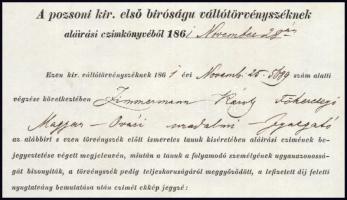 A pozsoni kir. első biróságu váltótörvényszéknek
aláirási czimkönyvéből 1861 November 28án
Ezen kir. váltótörvényszéknek 1861 évi Novemb. 25. szám alatti
végzése következtében Zimmermann Károly Főherczegi
Magyar-Óvári uradalmi Igazgató
az alábbirt s ezen törvényszék előtt ismeretes tanuk kiséretében aláirási czimének be-
jegyeztetése végett megjelenvén, miután a tanuk a folyamodó személyének ugyanazonossá-
gát bizonyiták, a törvényszék pedig teljeskoruságáról meggyőződött, a lefizetett dij feletti
nyugtatvány bemutatása után czimét ekkép jegyzé: